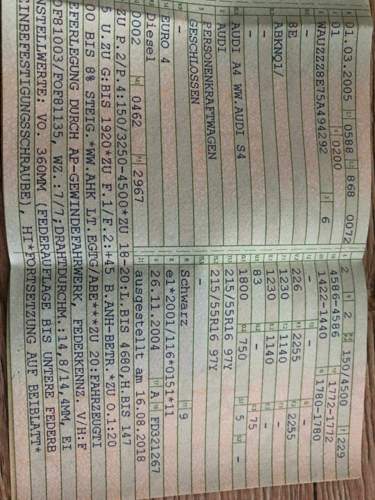 01.03.2005 0588 868 0072
01 0200
WAUZZZ8E75A494292 6
8E
ABKNQ1/
-
AUDI
AUDI A4 WW.AUDI S4
-
PERSONENKRAFTWAGEN
GESCHLOSSEN
-
EURO 4
Diesel
0002 0462 2967
2 2 150/4500 229
4586-4586 1772-1772
1422-1440 1780-1780
226 2255 2255
1230 1140
1230 1140
83 75
1800 750 5 -
215/55R16 97Y
215/55R16 97Y
-
Schwarz 9
e1*2001/116*0151*11
26.11.2004 A FD321267
ausgestellt am 16.08.2018
ZU P.2/P.4:150/3250-4500*ZU 18-20:L.BIS 4680,H.BIS 147
5 U.ZU G:BIS 1920*ZU F.1/F.2:+45 B.ANH-BETR.*ZU O.1:20
00 BIS 8% STEIG.*WW.AHK LT.EGTG/ABE***ZU 20:FAHRZEUGTI
EFERLEGUNG DURCH AP-GEWINDEFAHRWERK, FEDERKENNZ. V/H:F
OF81003/FOFB1135, WZ.:7/7:DRAHTDURCHM.:14,8/14,4MM, EI
NSTELLWERTE: VO. 360MM (FEDERAUFLAGE BIS UNTERE FEDERB
EINBEFESTIGUNGSSCHRAUBE), HI*FORTSETZUNG AUF BEIBLATT*